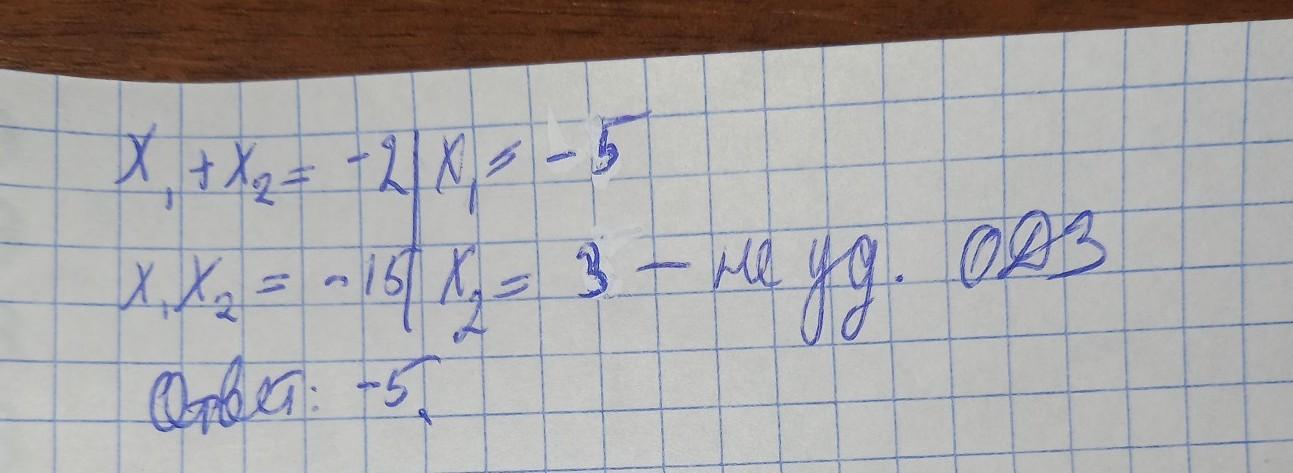 x₁ + x₂ = -2 | x₁ = -5
x₁x₂ = -15 | x₂ = 3 — не уд. ОДЗ
Ответ: -5.